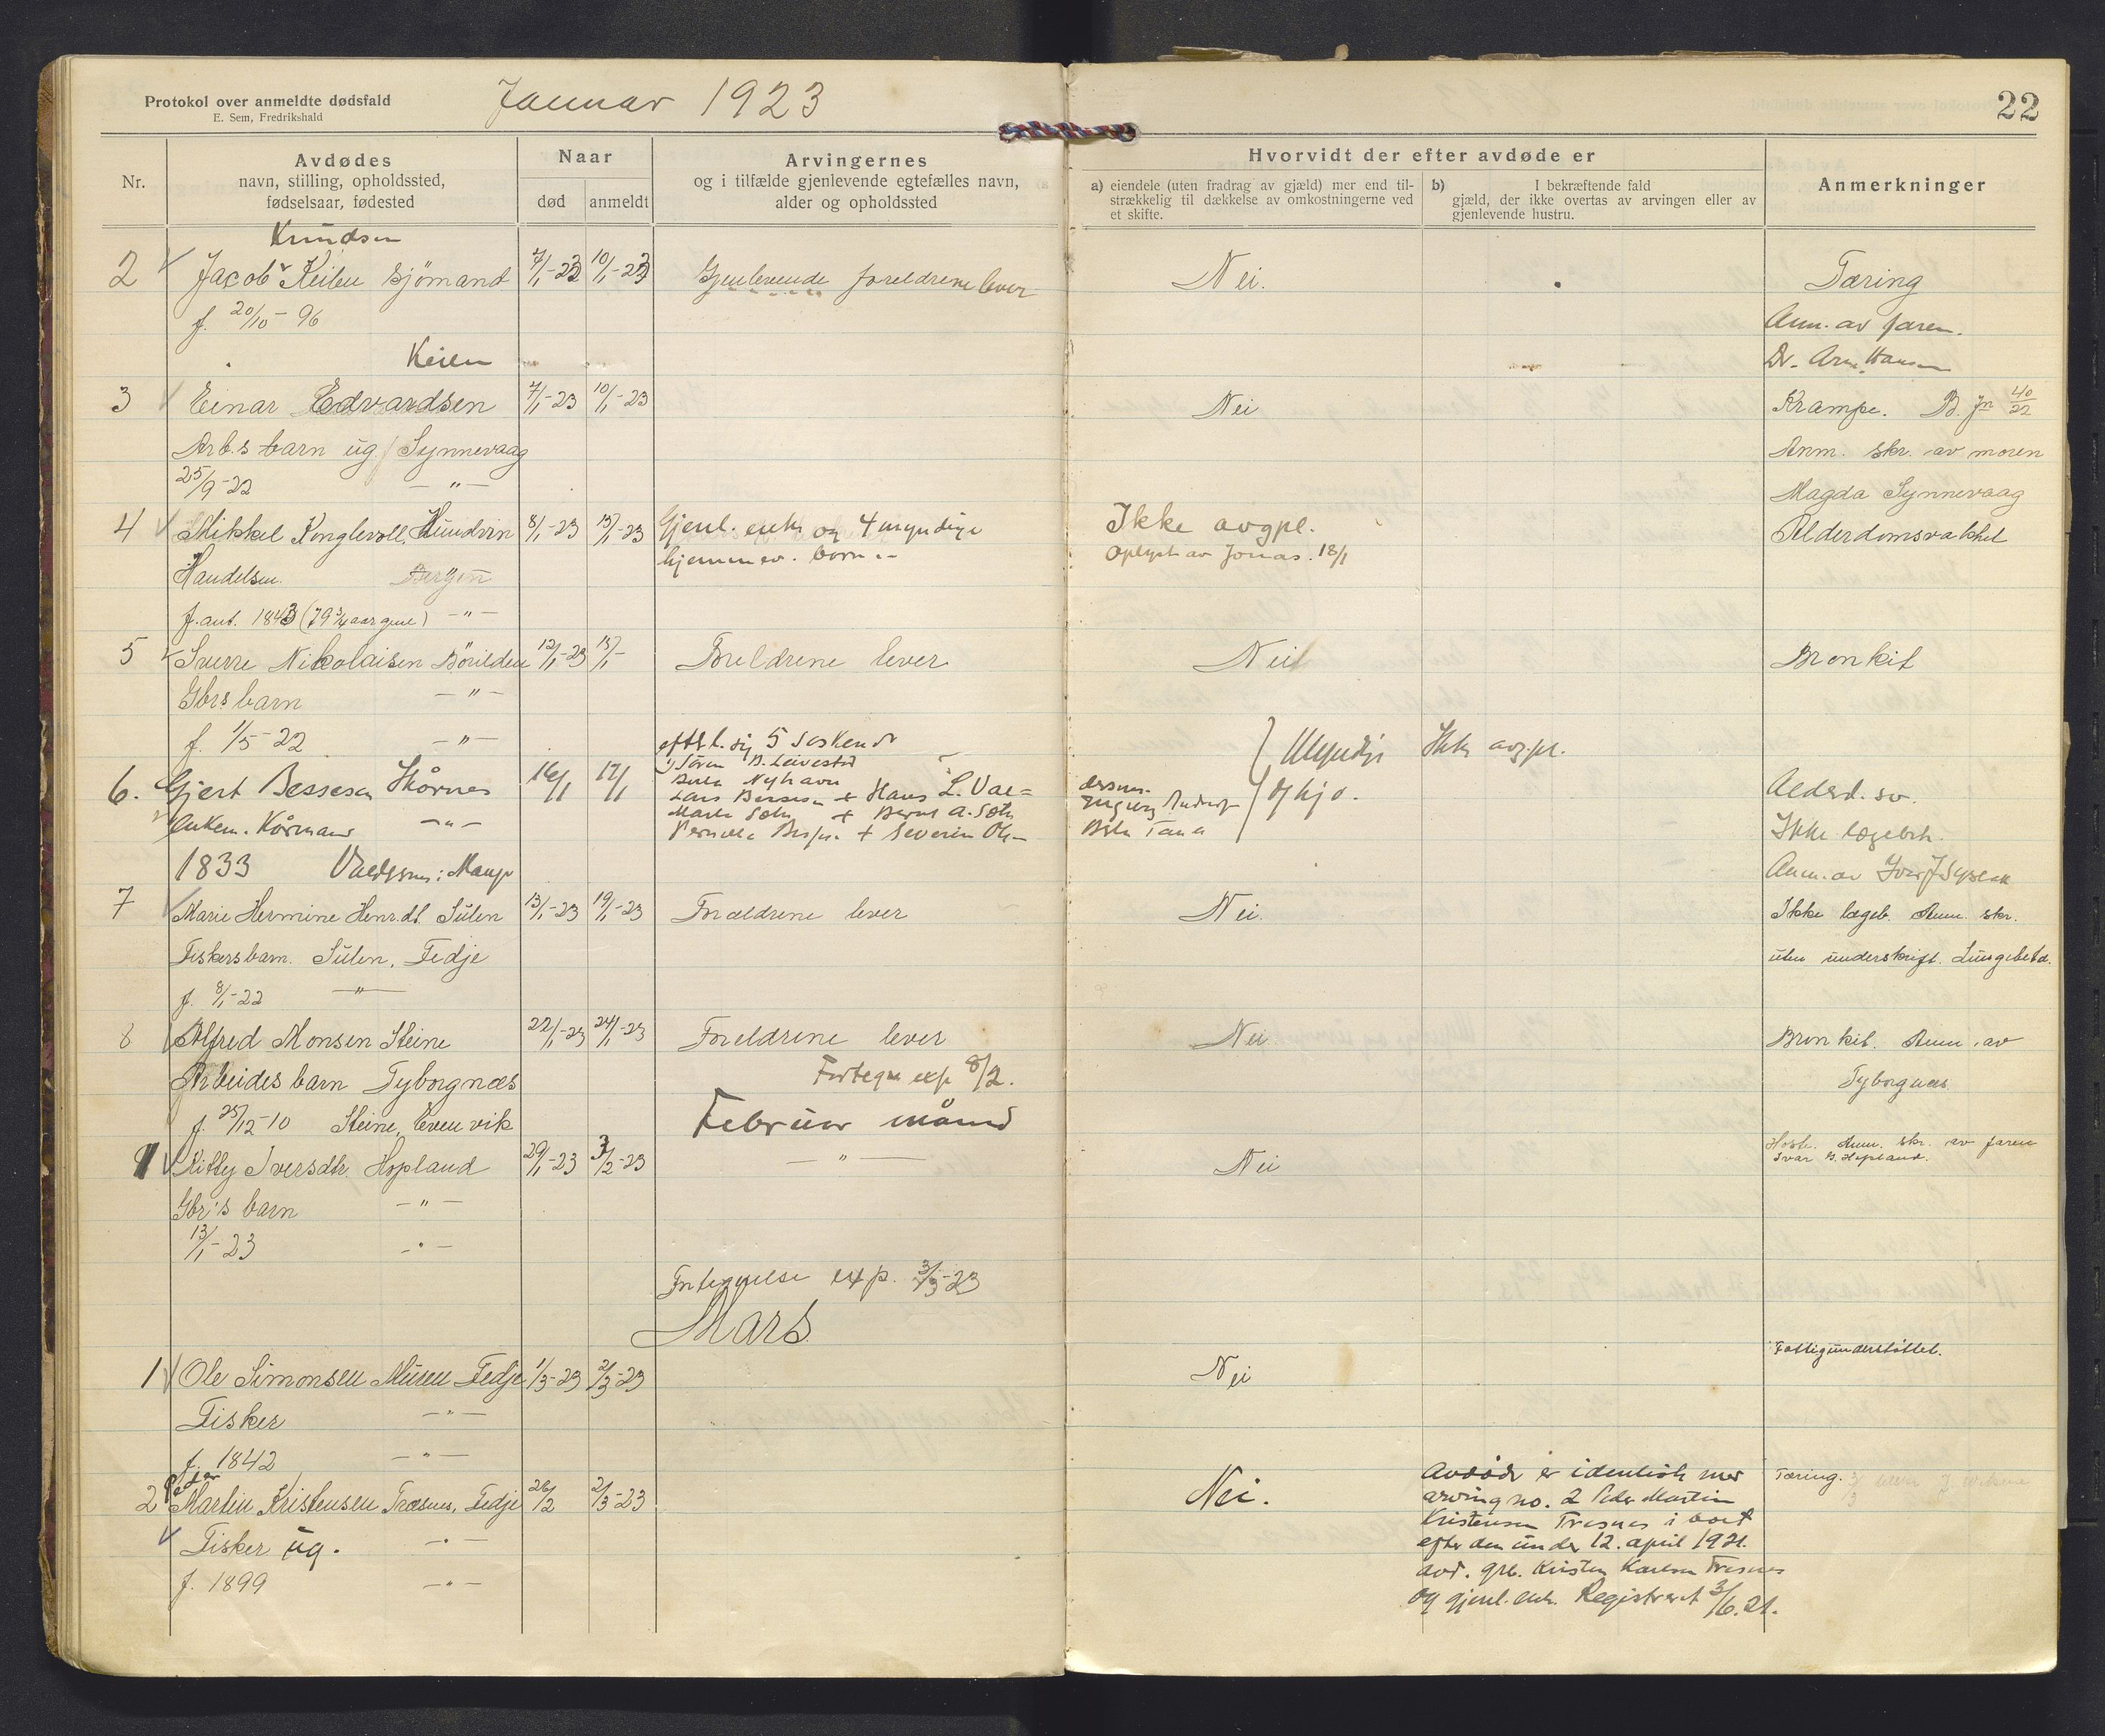 Protokol over anmeldte dødsfald
E. Sem, Fredrikshald
Januar 1923
22
Nr.
Avdødes
navn, stilling, opholdssted,
fødselsaar, fødested
Naar
død
anmeldt
Arvingernes
og i tilfælde gjenlevende egtefælles navn,
alder og opholdssted
Hvorvidt der efter avdøde er
a) eiendele (uten fradrag av gjæld) mer end til-
strækkelig til dækkelse av omkostningerne ved
et skifte.
b) I bekræftende fald
gjæld, der ikke overtas av arvingen eller av
gjenlevende hustru.
Anmerkninger
Knudsen
2 Jacob Keilen Sjömand 7/1-23 10/1-23 Gjenlevende foreldrene lever Nei. Tæring
f. 20/10-96 Anm. av faren.
Keilen Dr. Arn. Hansen
3 Einar Edvardsen 7/1-23 10/1-23 Nei Krampe. B. Jn 40/22
Arb.s barn ug. Synnevaag Anm. skr. av moren
25/9-22 -"- Magda Synnevaag
4 Mikkel Konglevoll, Hundvin 8/1-23 15/1-23 Gjenl. enke og 4 myndige Ikke avgpl. Alderdomsvakkel
Handelsm. Bergen hjemmev. born Oplyst av Jonas. 18/1
f. ant. 1843 (79 3/4 aar gml) -"-
5 Sverre Nikolaisen Börilden 12/1-23 15/1- Foreldrene lever Nei Bronkit
Gbrs barn -"-
f. 1/5-22 -"- efterl. sig 5 söskende Myndige Ikke avg.pl.
1) Sören B. Leivestad
6. Gjert Bessesen Skörnes 16/1 17/1 Nyhavn og hjv. Alderd. sv.
Lars Bessesen + Hans L.
Enkem. Kårmand -"- + Severin Ikke lægebeh.
1833 Anm. av
7 Marie Hermine Henr.dt. Sulen 13/1-23 19/1-23 Forældrene lever Nei. Ikke lægeb. Anm. skr.
Fiskersbarn. Sulen, Fedje uten underskrift. Lungebetd.
f. 8/1-22 -"-
8 Alfred Monsen Steine 22/1-23 24/1-23 Foreldrene lever Nei Bronkit. Anm. av
Arbeides barn Tyborgnæs Fortegn exp 8/2. Tyborgnæs
f. 25/12-10 Steine, Evenvik Februar måned
1 Kitty Iversdtr. Hopland 29/1-23 3/2-23 -"- Nei Host. Anm. skr. av faren
Ivar B. Hopland.
Gbr's barn -"-
13/1-23 -"-
Fortegnelse exp. 3/3-23
Mars
1 Ole Simonsen Muren Fedje 1/3-23 2/3-23 Nei Fattigunderstöttet.
Fisker -"-
f. 1842 -"-
Peder
2 Martin Kristensen Træsnes, Fedje 26/2 2/3-23 Nei. Avdöde er identisk med Tæring.
arving no. 2 Peder Martin
Kristensen Træsnes i boet
Fisker ug. -"- efter den under 12. april 1921.
f. 1899 -"- avd. grb. Kristen Karlsen Træsnes
og gjenl. enke. Registreret 3/6.21.